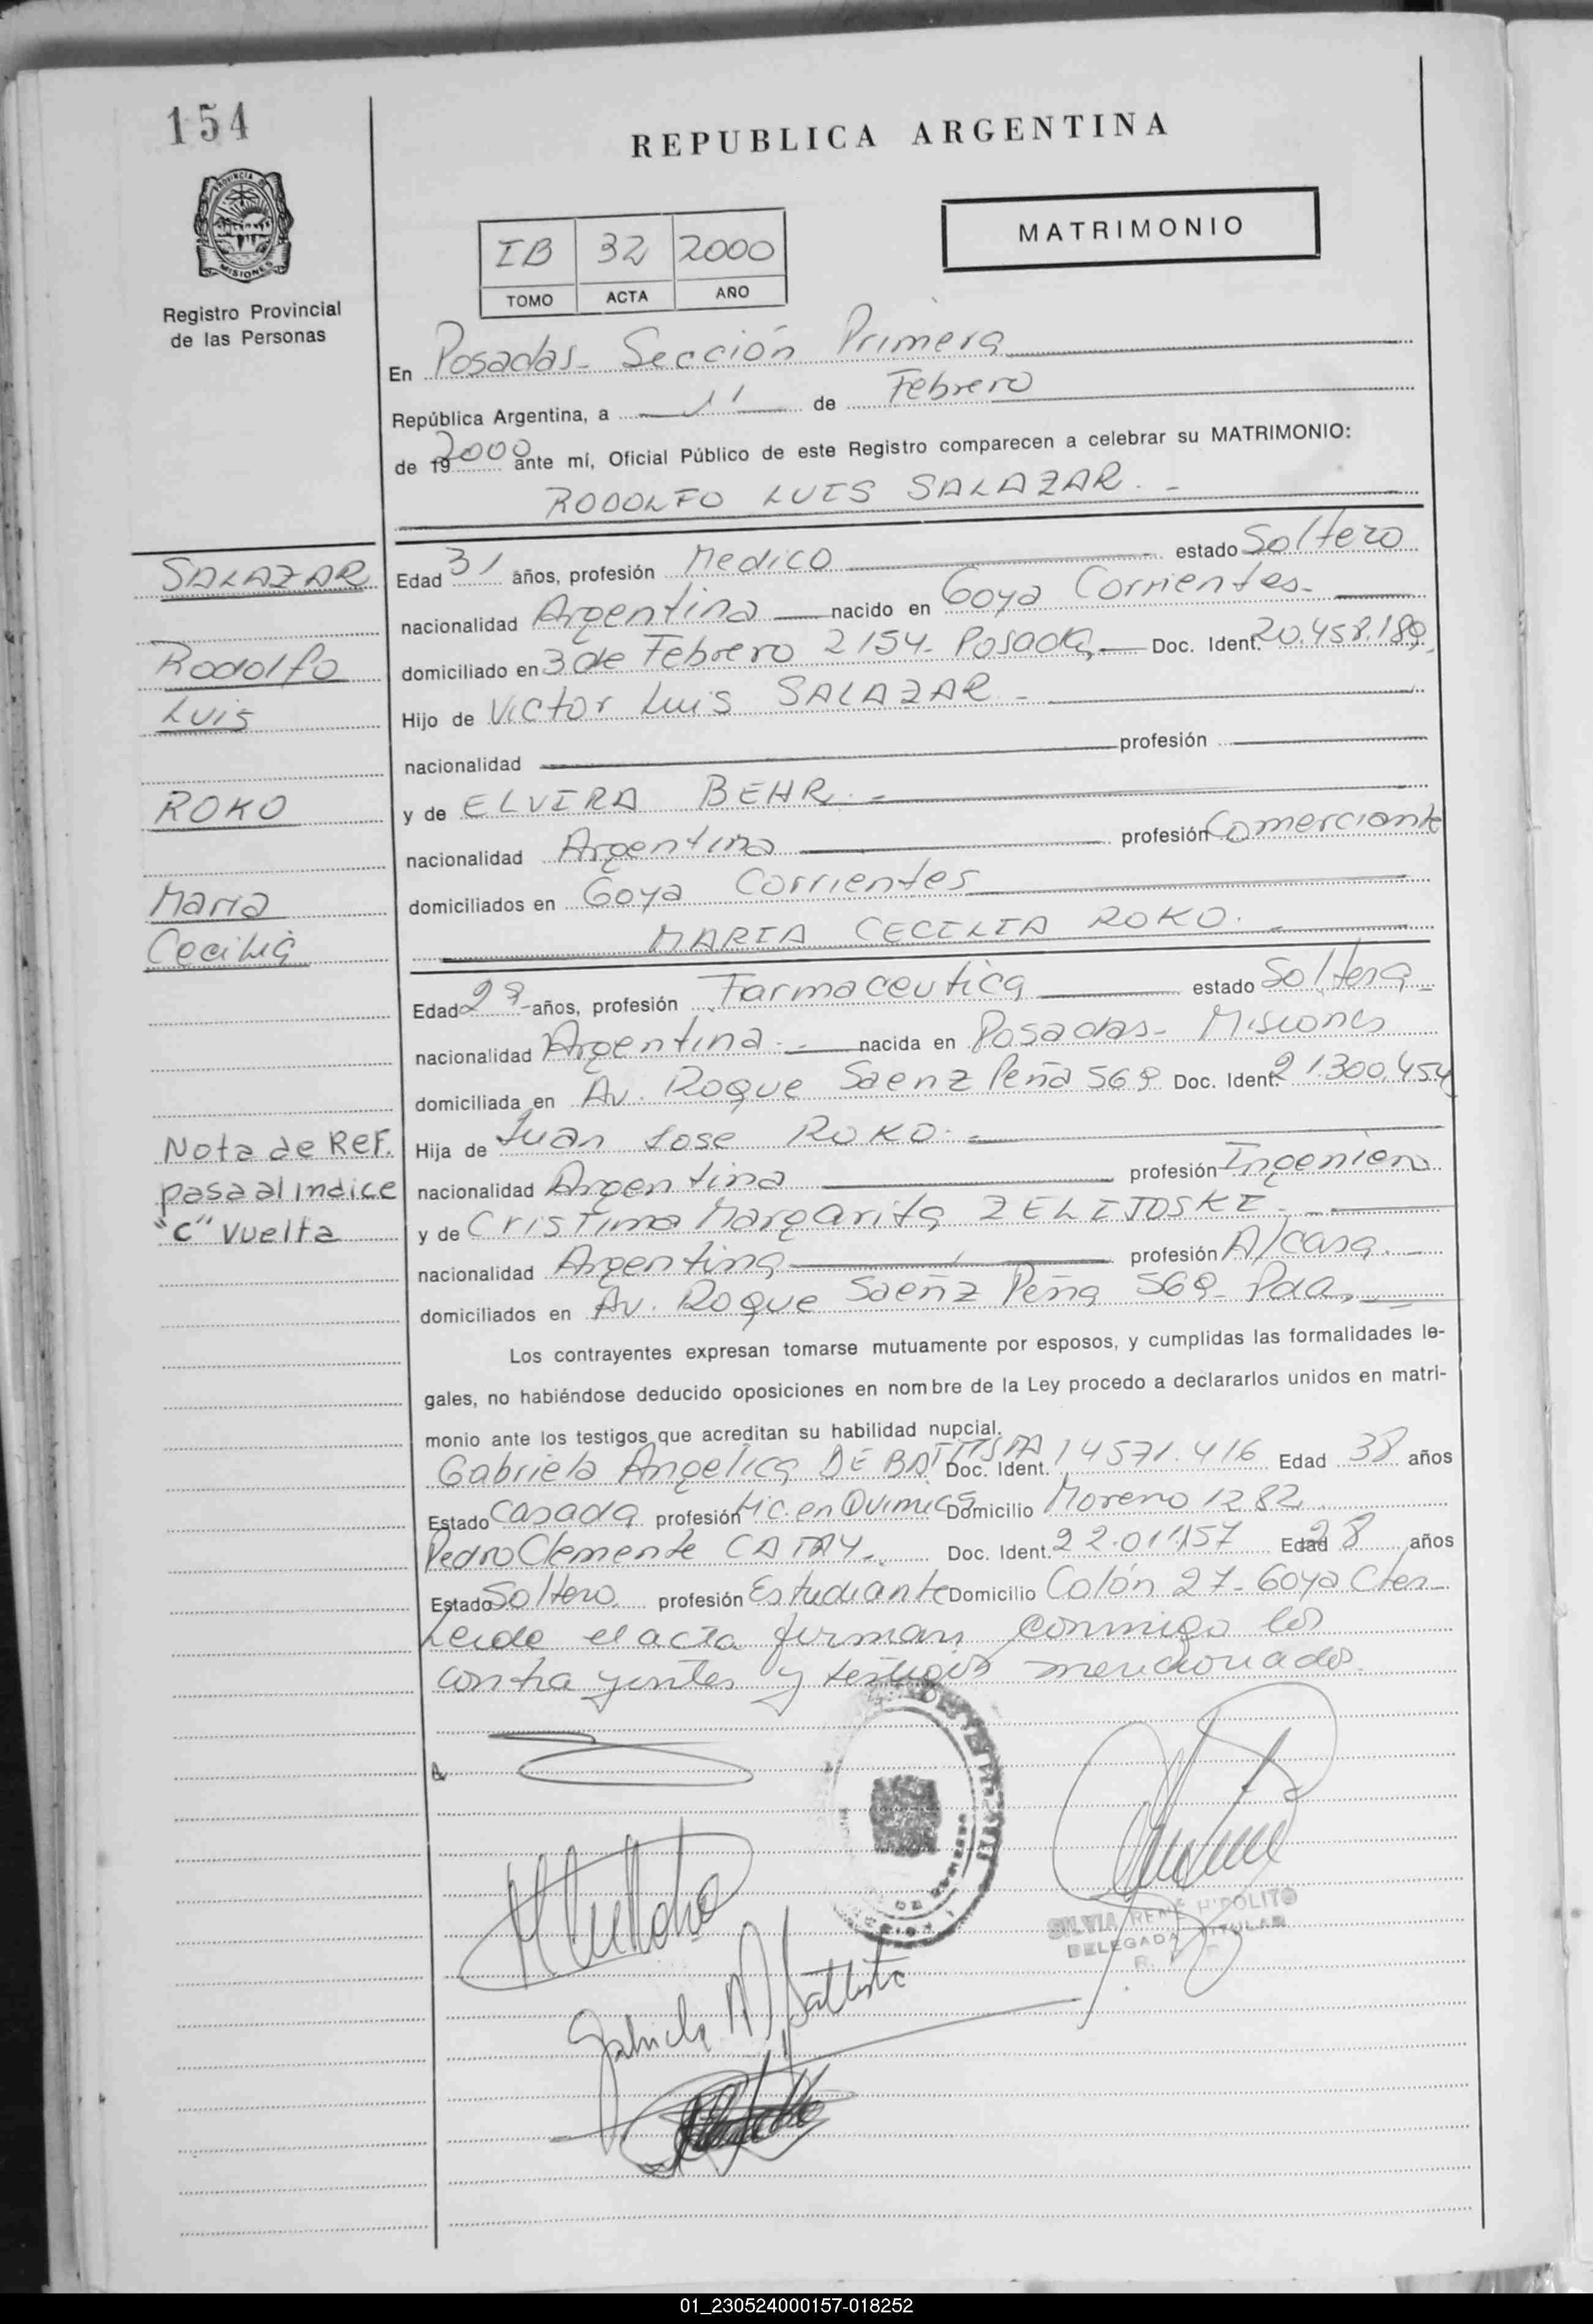 154
REPUBLICA ARGENTINA
PROVINCIA
MISIONES
Registro Provincial
de las Personas
IB 32 2000
TOMO ACTA AÑO
MATRIMONIO
En Posadas - Sección Primera
República Argentina, a 11 de Febrero
de 19 2000 ante mí, Oficial Público de este Registro comparecen a celebrar su MATRIMONIO:
RODOLFO LUIS SALAZAR. -
SALAZAR
Rodolfo
Luis
ROKO
Maria
Cecilia
Edad 31 años, profesión Medico estado Soltero
nacionalidad Argentina nacido en Goya Corrientes-
domiciliado en 3 de Febrero 2154- Posadas Doc. Ident. 20.458.189
Hijo de Victor Luis SALAZAR -
nacionalidad profesión
y de ELVIRA BEHR. -
nacionalidad Argentina profesión Comerciante
domiciliados en Goya Corrientes
MARIA CECILIA ROKO. -
Edad 29 años, profesión Farmaceutica estado Soltera
nacionalidad Argentina.- nacida en Posadas- Misiones
domiciliada en Av. Roque Saenz Peña 569 Doc. Ident. 21.300.454
Nota de Ref.
pasa al indice
"C" vuelta
Hija de Juan José ROKO. -
nacionalidad Argentina profesión Ingeniero
y de Cristina Margarita ZELIJOSKI -
nacionalidad Argentina profesión A/casa.
domiciliados en Av. Roque Saenz Peña 569- Pdas
Los contrayentes expresan tomarse mutuamente por esposos, y cumplidas las formalidades le-
gales, no habiéndose deducido oposiciones en nombre de la Ley procedo a declararlos unidos en matri-
monio ante los testigos que acreditan su habilidad nupcial.
Gabriela Angelica DE BATTISTA Doc. Ident. 14571.416 Edad 38 años
Estado Casada profesión Lic. en Quimica Domicilio Moreno 1282
Pedro Clemente CATAY. Doc. Ident. 22.011157 Edad 28 años
Estado Soltero profesión Estudiante Domicilio Colón 27- Goya Ctes
Leida el acta firman conmigo los
contrayentes y testigos mencionados.
SILVIA RENE HIPOLITO
DELEGADA TITULAR
01_230524000157-018252